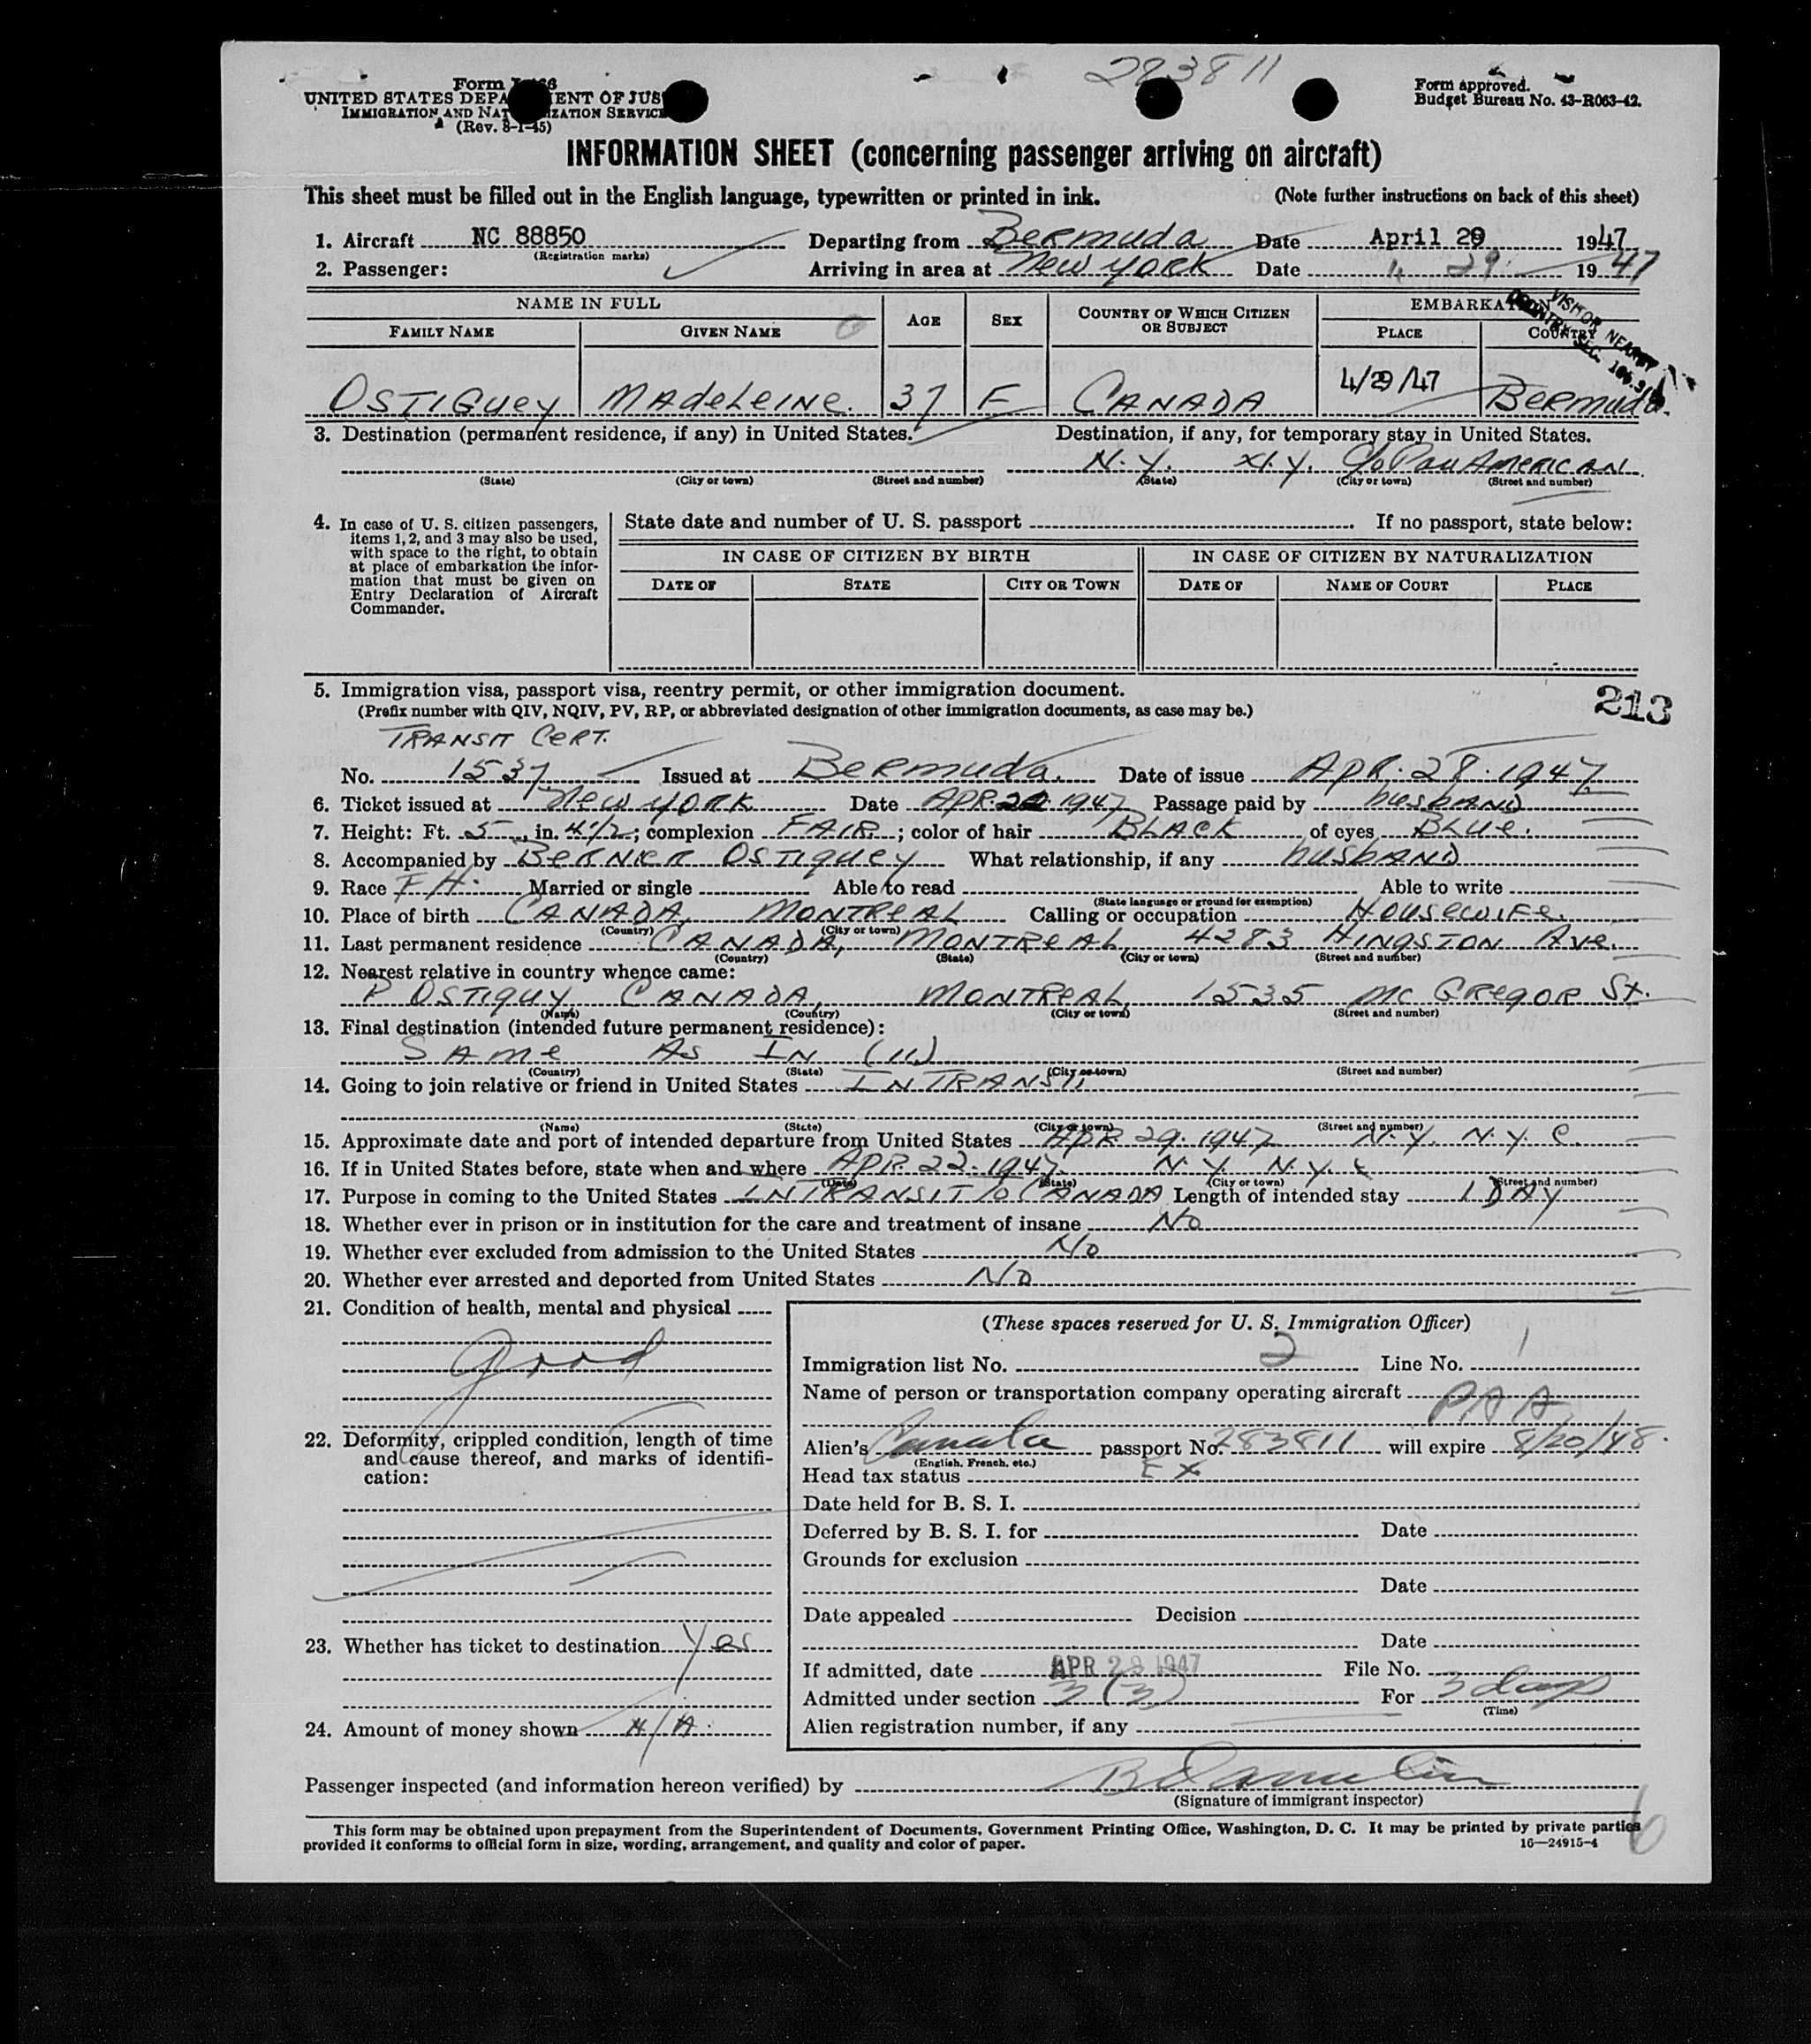 283811
Form I-466
UNITED STATES DEPARTMENT OF JUSTICE
IMMIGRATION AND NATURALIZATION SERVICE
(Rev. 8-1-45)
Form approved.
Budget Bureau No. 43-R063-42.
INFORMATION SHEET (concerning passenger arriving on aircraft)
This sheet must be filled out in the English language, typewritten or printed in ink. (Note further instructions on back of this sheet)
1. Aircraft NC 88850 Departing from Bermuda Date April 29 1947
(Registration marks)
2. Passenger: Arriving in area at New York Date 4 29 1947
NAME IN FULL AGE SEX COUNTRY OF WHICH CITIZEN OR SUBJECT EMBARKATION
FAMILY NAME GIVEN NAME PLACE COUNTRY
VISITOR NEARBY
COUNTRY SEC.
OSTIGUEY MADELEINE. 37 F CANADA 4/29/47 BERMUDA.
3. Destination (permanent residence, if any) in United States. Destination, if any, for temporary stay in United States.
N.Y. N.Y. C/o Pan American
(State) (City or town) (Street and number) (State) (City or town) (Street and number)
4. In case of U. S. citizen passengers, items 1, 2, and 3 may also be used, with space to the right, to obtain at place of embarkation the information that must be given on Entry Declaration of Aircraft Commander.
State date and number of U. S. passport If no passport, state below:
IN CASE OF CITIZEN BY BIRTH IN CASE OF CITIZEN BY NATURALIZATION
DATE OF STATE CITY OR TOWN DATE OF NAME OF COURT PLACE
5. Immigration visa, passport visa, reentry permit, or other immigration document.
213
(Prefix number with QIV, NQIV, PV, RP, or abbreviated designation of other immigration documents, as case may be.)
TRANSIT CERT.
No. 1537 Issued at Bermuda. Date of issue APR. 28. 1947
6. Ticket issued at New York Date APR. 22 1947 Passage paid by husband
7. Height: Ft. 5, in. 4 1/2; complexion FAIR; color of hair BLACK of eyes BLUE.
8. Accompanied by BERNIER OSTIGUEY What relationship, if any husband
9. Race F H. Married or single Able to read Able to write
(State language or ground for exemption)
10. Place of birth CANADA, MONTREAL Calling or occupation Housewife.
(Country) (City or town)
11. Last permanent residence CANADA, MONTREAL, 4283 HINGSTON AVE.
(Country) (State) (City or town) (Street and number)
12. Nearest relative in country whence came:
P OSTIGUY CANADA, MONTREAL, 1535 MC GREGOR St.
(Name) (Country) (City or town) (Street and number)
13. Final destination (intended future permanent residence):
SAME AS IN (11)
(Country) (State) (City or town) (Street and number)
14. Going to join relative or friend in United States IN TRANSIT
(Name) (State) (City or town) (Street and number)
15. Approximate date and port of intended departure from United States APR 29. 1947 N.Y. N.Y. C.
16. If in United States before, state when and where APR. 22. 1947. N.Y. N.Y. C
(Date) (State) (City or town) (Street and number)
17. Purpose in coming to the United States IN TRANSIT TO CANADA Length of intended stay 1 DAY
18. Whether ever in prison or in institution for the care and treatment of insane No
19. Whether ever excluded from admission to the United States No
20. Whether ever arrested and deported from United States No
21. Condition of health, mental and physical
Good
22. Deformity, crippled condition, length of time and cause thereof, and marks of identification:
23. Whether has ticket to destination Yes
24. Amount of money shown N/A.
(These spaces reserved for U. S. Immigration Officer)
Immigration list No. 2 Line No. 1
Name of person or transportation company operating aircraft
PAA
Alien's Canada passport No. 283811 will expire 8/20/48.
(English, French, etc.)
Head tax status EX
Date held for B. S. I.
Deferred by B. S. I. for Date
Grounds for exclusion
Date
Date appealed Decision
Date
If admitted, date APR 29 1947 File No.
Admitted under section 3 (3) For 3 days
(Time)
Alien registration number, if any
Passenger inspected (and information hereon verified) by
(Signature of immigrant inspector)
6
This form may be obtained upon prepayment from the Superintendent of Documents, Government Printing Office, Washington, D. C. It may be printed by private parties
provided it conforms to official form in size, wording, arrangement, and quality and color of paper. 16—24915-4